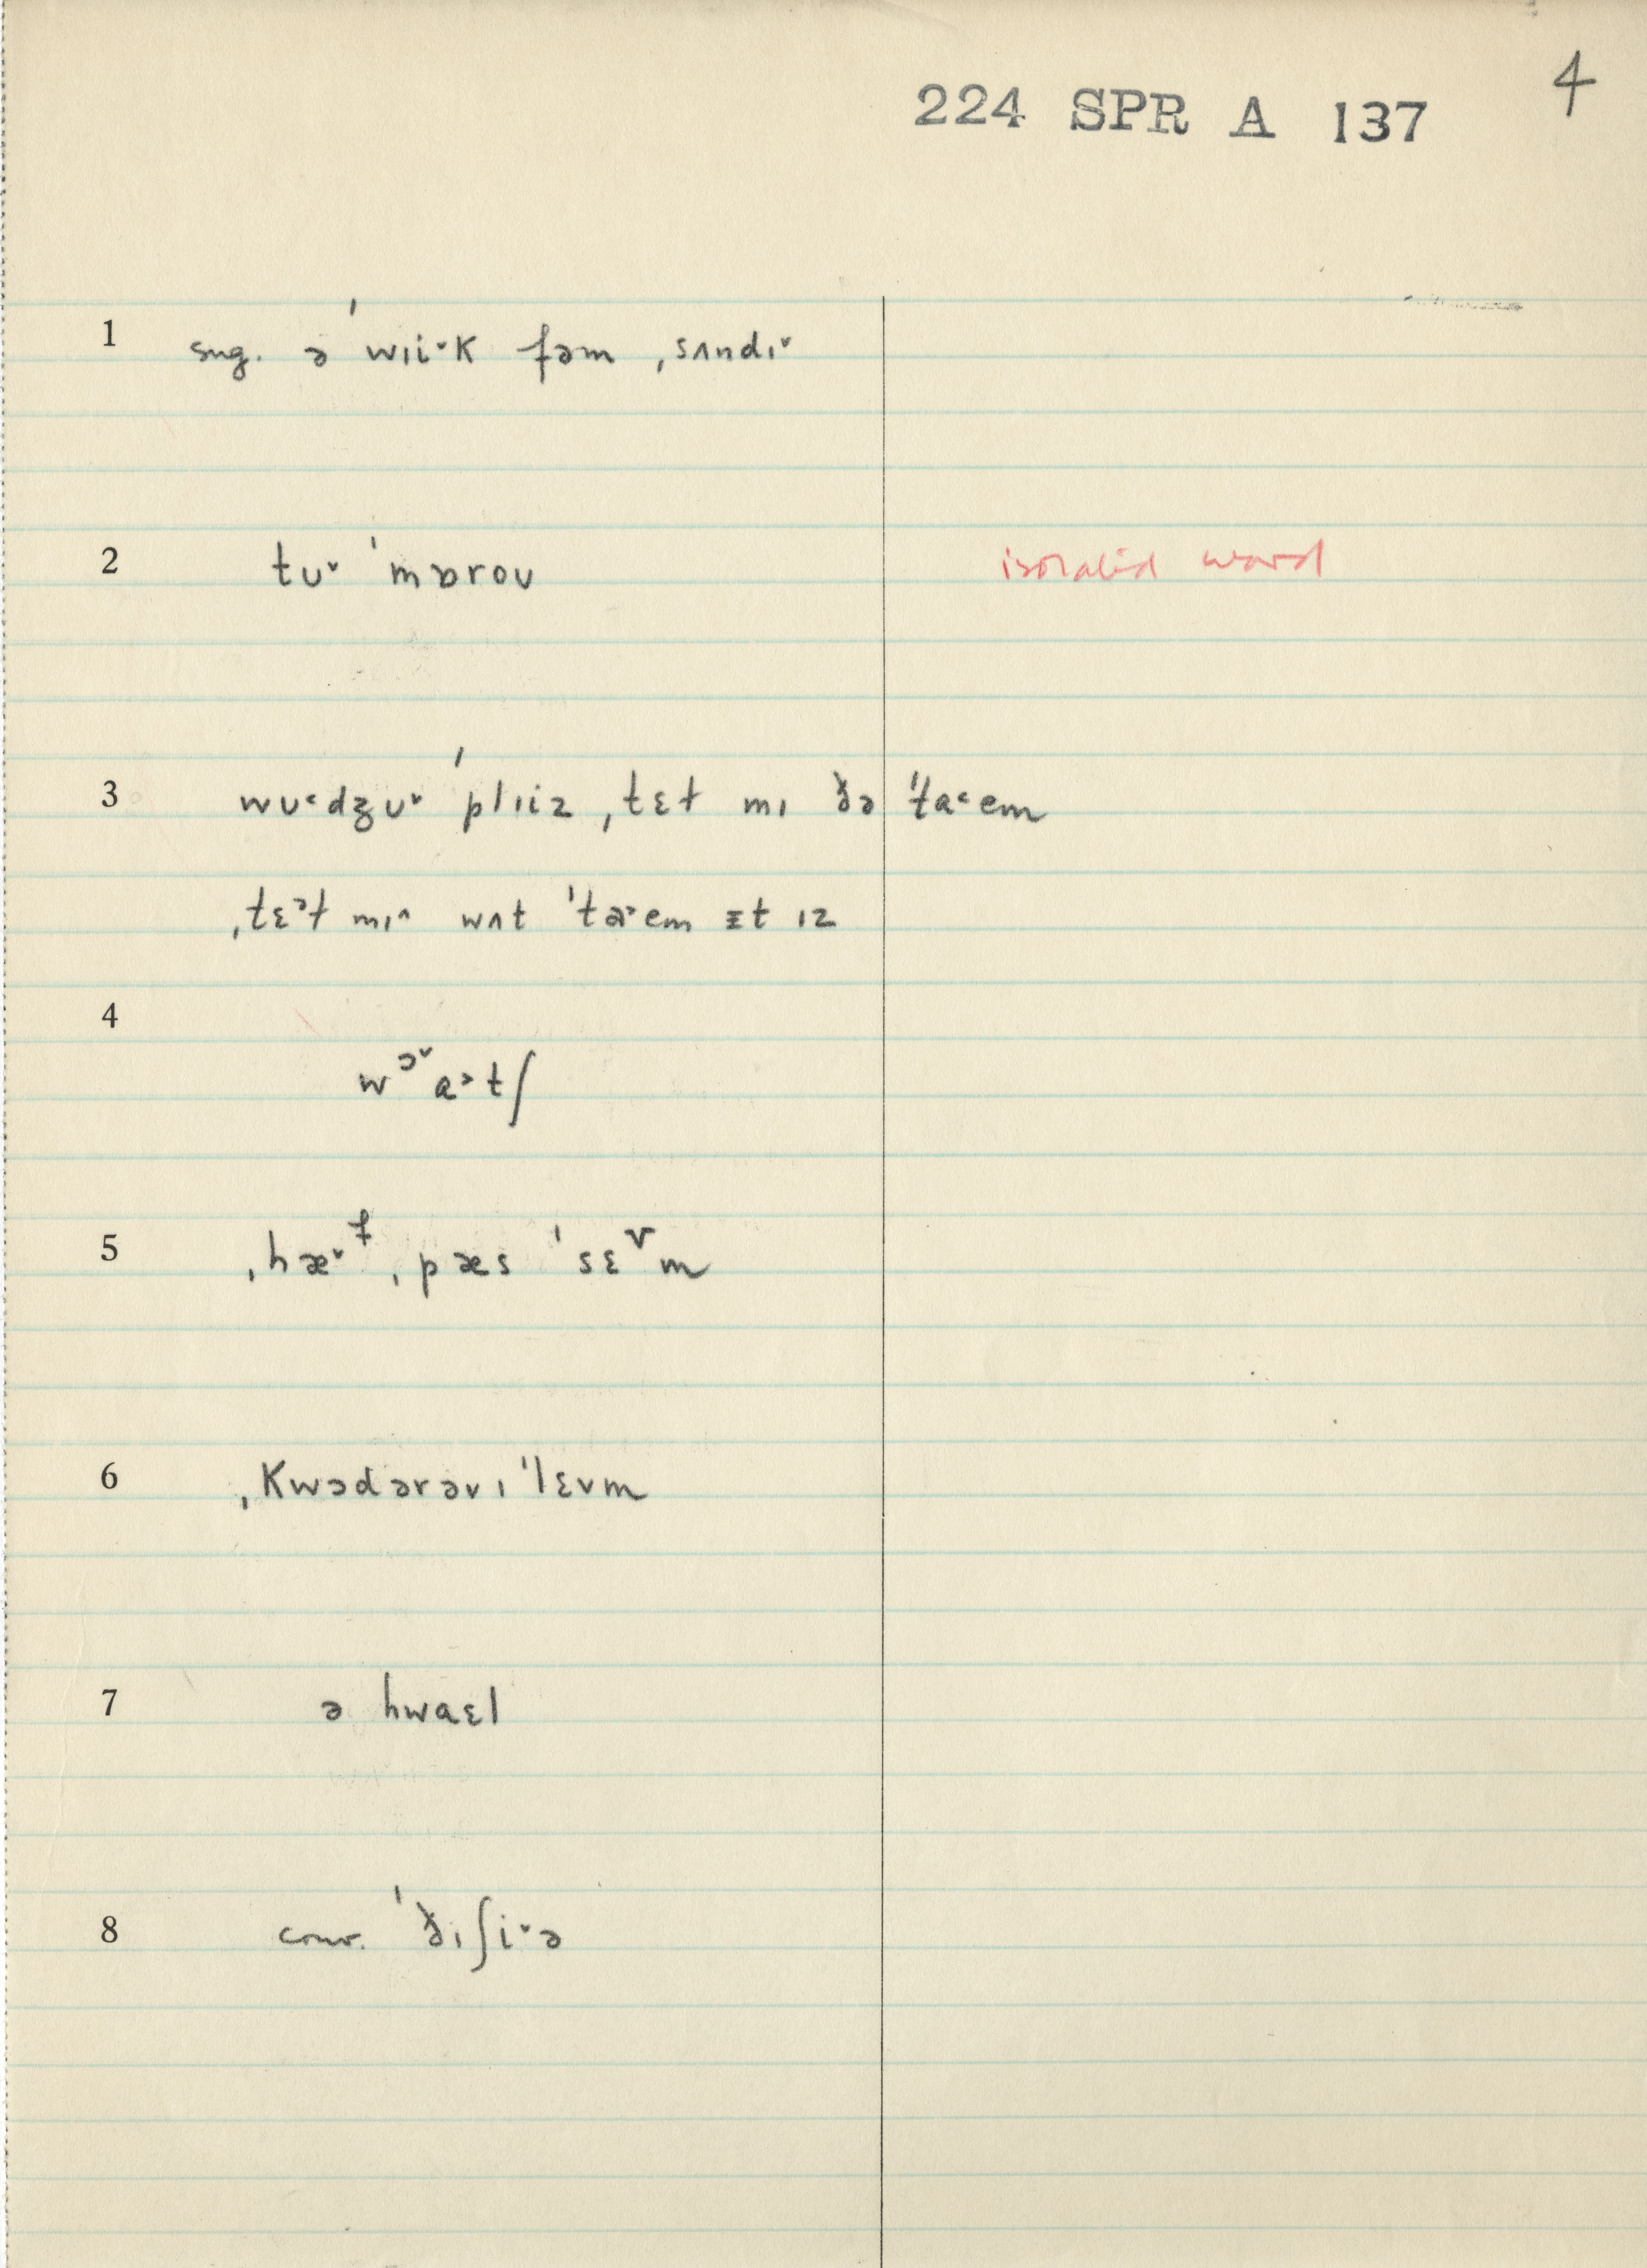 4
224 SPR A 137
1 sug. ə ˈwɪi˅k fəm ˌsʌndɪ˅
2 tʊ˅ ˈmɒroʊ isolated word
3 wʊ˂dʒʊ˅ ˈplɪiz ˌtɛɫ mɪ ðə ˈta˂em
ˌtɛᵊɫ mɪ˄ wʌt ˈta˃em ɪt ɪz
4 wᵓ˅a˃tʃ
5 ˌhæ˅ᶠ ˌpæs ˈsɛᵛm
6 ˌkwɔdərəvɪˈlɛvm
7 ə hwaɛl
8 conv. ˈðɪʃi˅ə